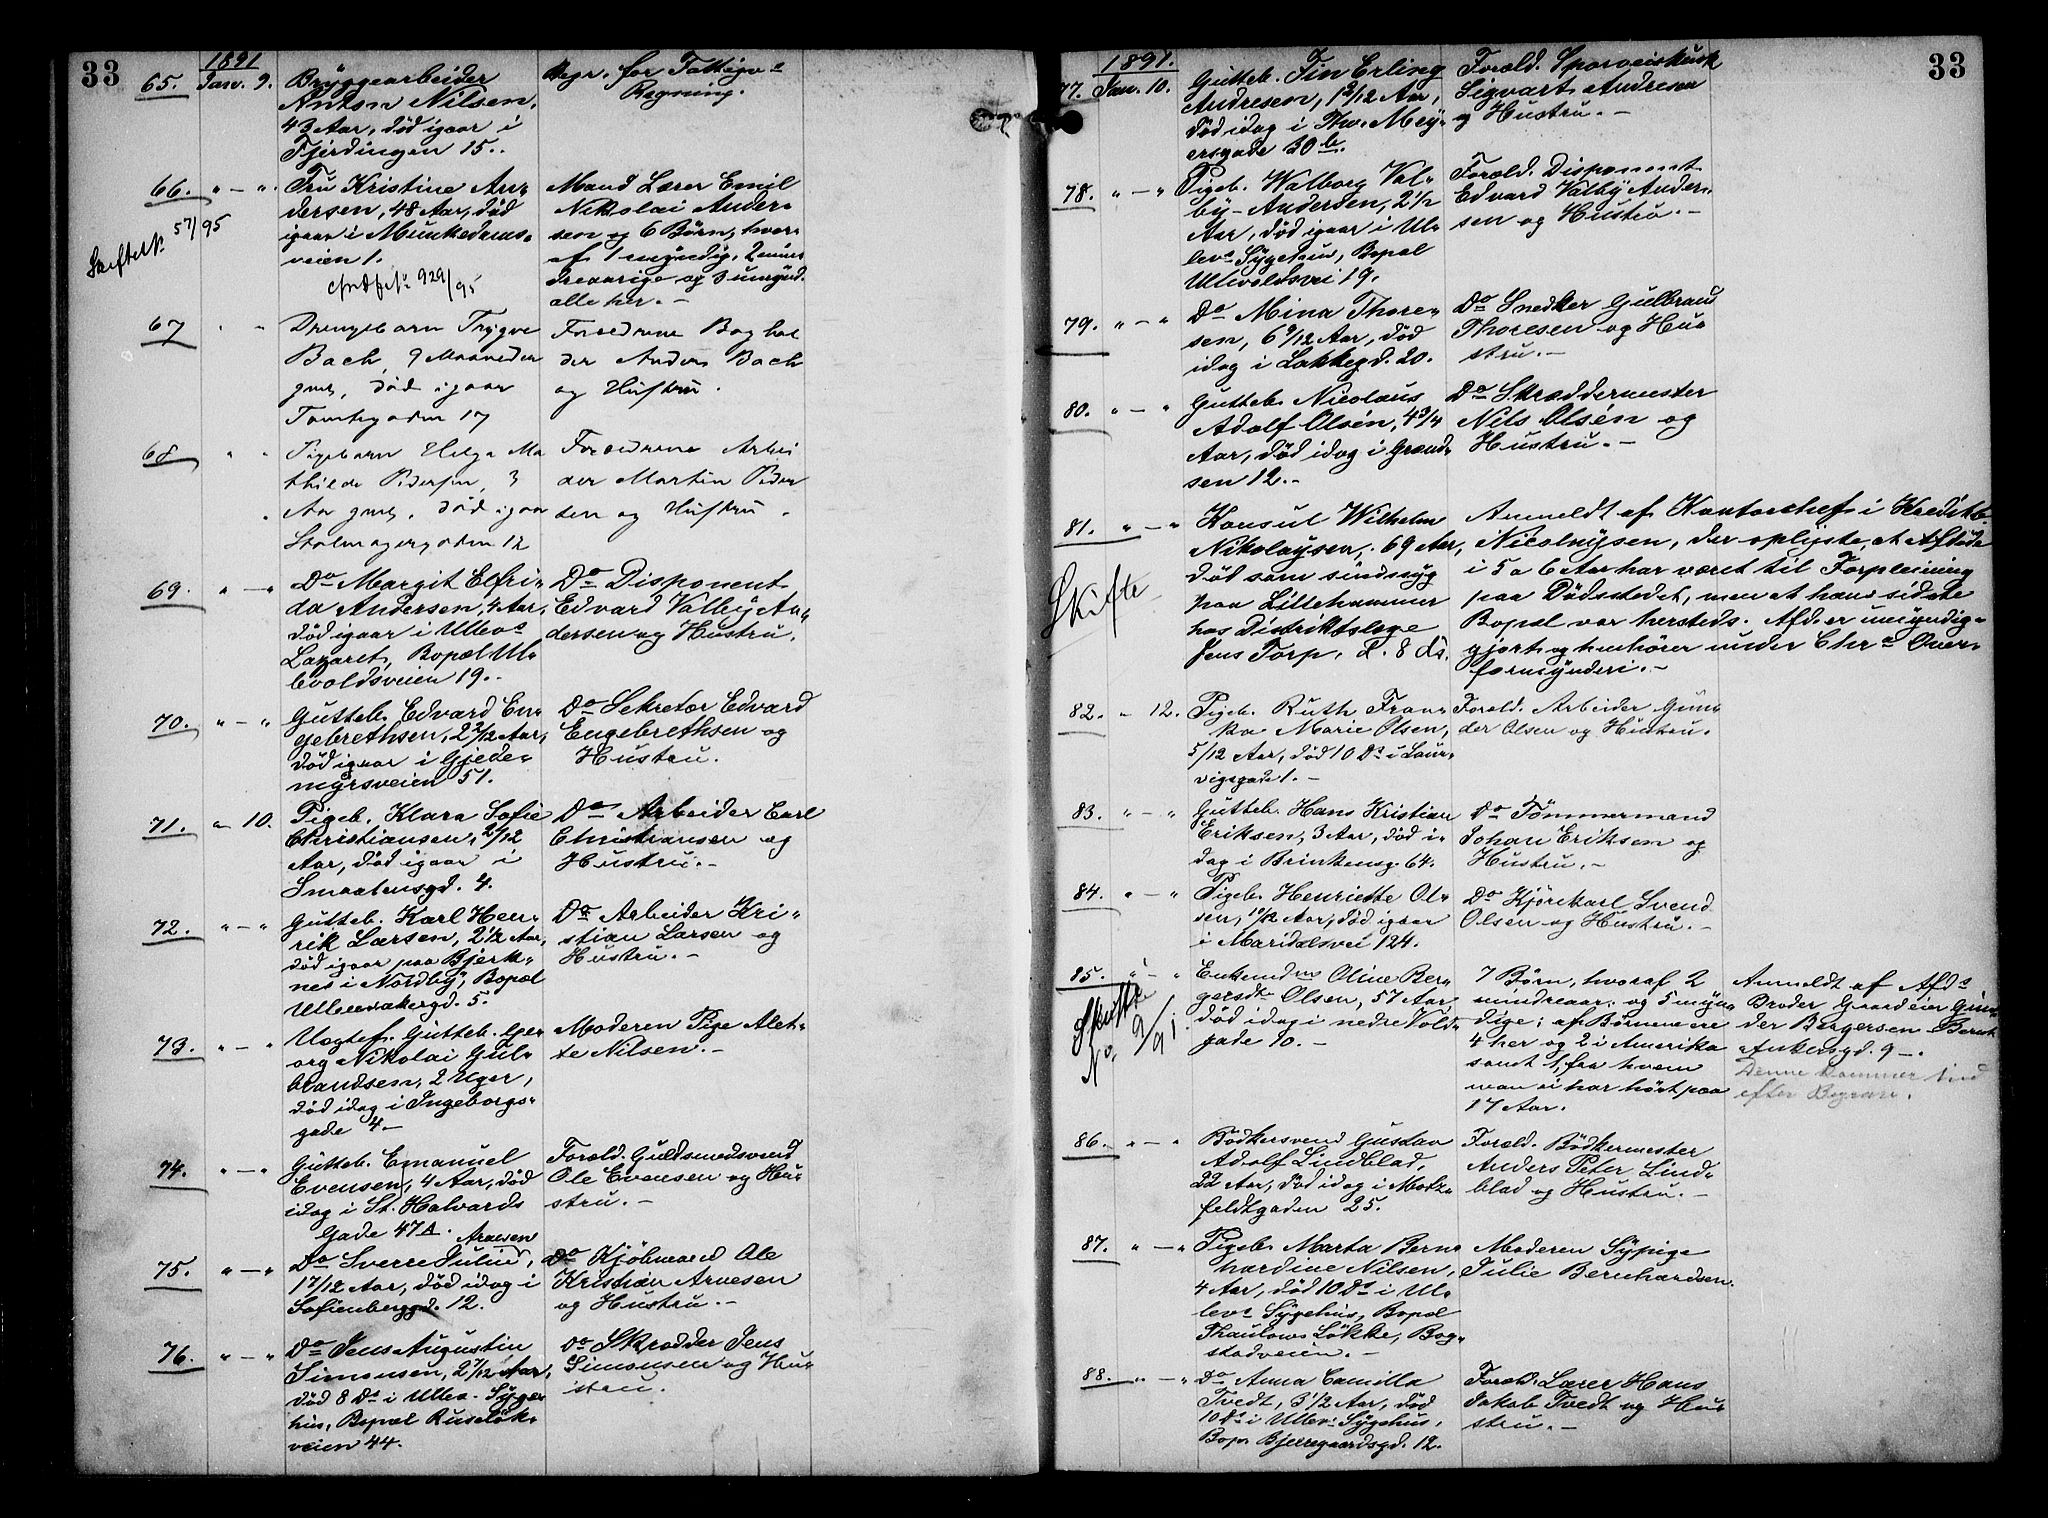 33
1891
65. Jan. 9. Bryggearbeider
Anton Nilsen,
43 Aar, död igaar i
Fjerdingen 15.
Begr. for Fattigv.s
Regning.
66. " — " Fru Kristine An-
dersen, 48 Aar, död
igaar i Munkedams-
veien 1.
Skifte No. 57/95
929/95
Mand Lærer Emil
Nikolai Ander-
sen og 6 Börn, hvor-
af 1 myndig, 2 min-
dreaarige og 3 umynd.
alle her. —
67 " " Drengebarn Trygve
Bach, 9 Maaneder
gml, död igaar
Tomtegaden 17
Forældrene Boghol
der Anders Bach
og Hustru.
68 " " Pigebarn Helga Ma
thilde Pedersen, 3
Aar gml, död igaar
Stolmagergaden 12
Forældrene Arbei
der Martin Peder
sen og Hustru.
69. " — " Do Margit Elfri-
da Andersen, 4 Aar,
död igaar i Ullev.s
Lazaret, Bopæl Ul-
levoldsveien 19.
Do Disponent
Edvard Valby An-
dersen og Hustru.
70. " — " Gutteb. Edvard En-
gebrethsen, 2 2/12 Aar,
död igaar i Gjeite-
myrsveien 51.
Do Sekretær Edvard
Engebrethsen og
Hustru.
71. " 10. Pigeb. Klara Sofie
Christiansen, 2/12
Aar, död igaar i
Smaalensgd. 4.
Do Arbeider Carl
Christiansen og
Hustru. —
72. " — " Gutteb. Karl Hen-
rik Larsen, 2 1/2 Aar,
död igaar paa Bjerk-
nes i Nordby, Bopæl
Ullensakergd. 5.
Do Arbeider Kri-
stian Larsen og
Hustru. —
73. " — " Uægtef. Gutteb. Ge-
org Nikolai Gul-
brandsen, 2 Uger,
död idag i Ingeborgs-
gade 4 —
Moderen Pige Alet-
te Nilsen. —
74. " — " Gutteb. Emanuel
Evensen, 4 Aar, död
idag i St. Halvards
Gade 47A.
Foræld. Guldsmedsvend
Ole Evensen og Hu-
stru. —
75. " — " Do Sverre Julius Arnesen,
1 7/12 Aar, död idag i
Sofienberggd. 12.
Do Kjöbmand Ole
Kristian Arnesen
og Hustru. —
76. " — " Do Jens Augustin
Simonsen, 2 7/12 Aar,
död 8 Ds i Ullev. Syge-
hus, Bopæl Ruselök-
veien 44.
Do Skrædder Jens
Simonsen og Hu-
stru.
33
1891.
77. Jan. 10. Gutteb. Fin Erling
Andresen, 1 2/12 Aar,
död idag i Thv. Mey-
ersgade 30 b.
Foræld. Sporveiskusk
Sigvart Andresen
og Hustru. —
78. " — " Pigeb. Walborg Val-
by-Andersen, 2 1/2
Aar, död igaar i Ul-
levs Sygehus, Bopæl
Ullevoldsvei 19.
Foræld. Disponent
Edvard Valby Ander-
sen og Hustru. —
79. " — " Do Mina Thore-
sen, 6 9/12 Aar, död
idag i Lakkegd. 20.
Do Snedker Gulbrand
Thoresen og Hu-
stru. —
80. " — " Gutteb. Nicolaus
Adolf Olsen, 4 3/4
Aar, död idag i Grænd-
sen 12. —
Do Skræddermester
Nils Olsen og
Hustru. —
81. " — " Konsul Wilhelm
Nikolaysen, 69 Aar,
död som sindssyg
paa Lillehammer
hos Distriktslæge
Jens Torp, d. 8 ds.
Skifte
Anmeldt af Kontorchef i Kreditb.
Nicolaysen, der oplyste, at Afdöde
i 5 a 6 Aar har været til Forpleining
paa Dödsstedet, men at hans sidste
Bopæl var hersteds. Afd. er umyndig-
gjort og henhörer under Chr.a Over-
formynderi. —
82. " 12. Pigeb. Ruth Fran-
ka Marie Olsen,
5/12 Aar, död 10 Ds i Laur-
vigsgade 1. —
Foræld. Arbeider Gun-
der Olsen og Hustru.
83. " — " Gutteb. Hans Kristian
Eriksen, 3 Aar, död i-
dag i Brinkensg. 64.
Do Tömmermand
Johan Eriksen og
Hustru. —
84. " — " Pigeb. Henriette Ol-
sen, 10/12 Aar, död igaar
i Maridalsvei 124.
Do Kjörekarl Svend
Olsen og Hustru. —
85. " — " Enkemdm Oline Ber-
gersdtr Olsen, 57 Aar
död idag i nedre Vold-
gade 10. —
Skifte
No. 9/91.
7 Börn, hvoraf 2
mindreaar. og 5 myn-
dige; af Börnene ere
4 her og 2 i Amerika
samt 1, fra hvem
man ei har hört paa
17 Aar.
Anmeldt af Afd.s
Broder Gaardeier Gun-
der Bergersen Bernt
Ankersgd. 9 —.
Denne kommer ind
efter Begrav.
86. " — " Bödkersvend Gustav
Adolf Lindblad,
22 Aar, död idag i Motz-
feldtgaden 25.
Foræld. Bödkermester
Anders Peter Lind-
blad og Hustru. —
87. " — " Pigeb. Marta Bern-
hardine Nilsen,
4 Aar, död 10 Ds i Ul-
levs Sygehus, Bopæl
Thaulows Lökke, Bog-
stadveien. —
Moderen Sypige
Julie Bernhardsen.
88. " — " Do Anna Camilla
Tvedt, 3 1/2 Aar, död
10 Ds i Ullev. Sygehus,
Bop. Bjerregaardsgd. 12.
Foræld. Lærer Hans
Jakob Tvedt og Hu-
stru. —